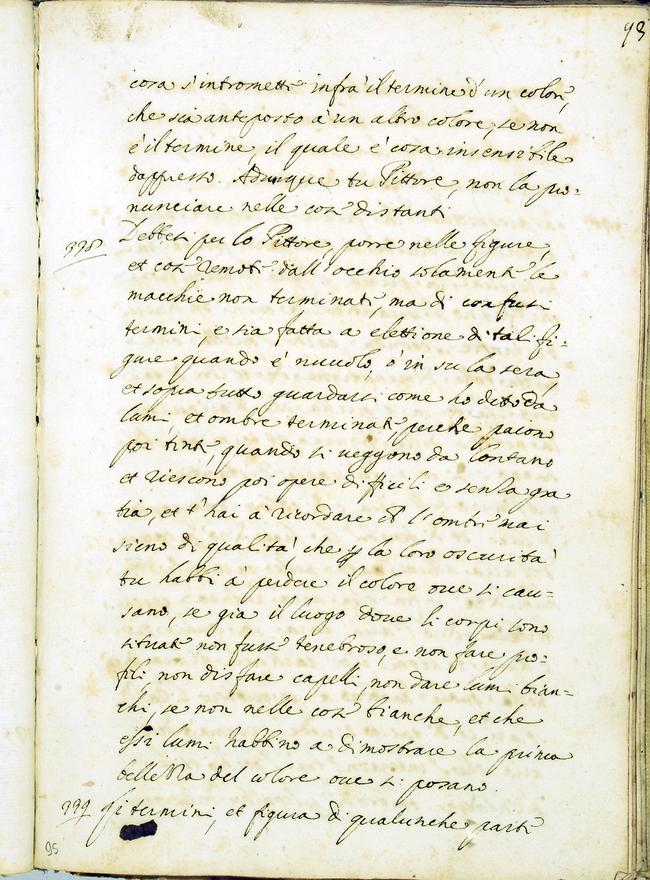 93
cosa s'intromette infra il termine d'un colore,
che sia anteposto à un altro colore, se non
è il termine, il quale è cosa insensibile
dappresso. Adunque tu Pittore, non la pro=
nunciare nelle cose distanti
338 Debbesi per lo Pittore porre nelle figure,
et cose remote dall'occhio solamente le
macchie non terminate, ma di confusi
termini, e sia fatta a elettione di tali fi=
gure quando è nuvolo, ò in su la sera,
et sopra tutto guardarsi come ho ditto da
lumi, et ombre terminate, perche paiono
poi tinte, quando si veggono da lontano
et riescono poi opere difficili e senza gra
tia, et t'hai à ricordare ch l'ombre mai
sieno di qualità, che p la loro oscurità
tu habbi à perdere il colore ove si cau=
sano, se gia il luogo dove li corpi sono
situati non fusse tenebroso, e non fare pro=
fili, non disfare capelli, non dare lumi bian=
chi, se non nelle cose bianche, et che
essi lumi habbino a dimostrare la prima
bellezza del colore ove si posano.
339 Li termini, et figura di qualunche parte
95